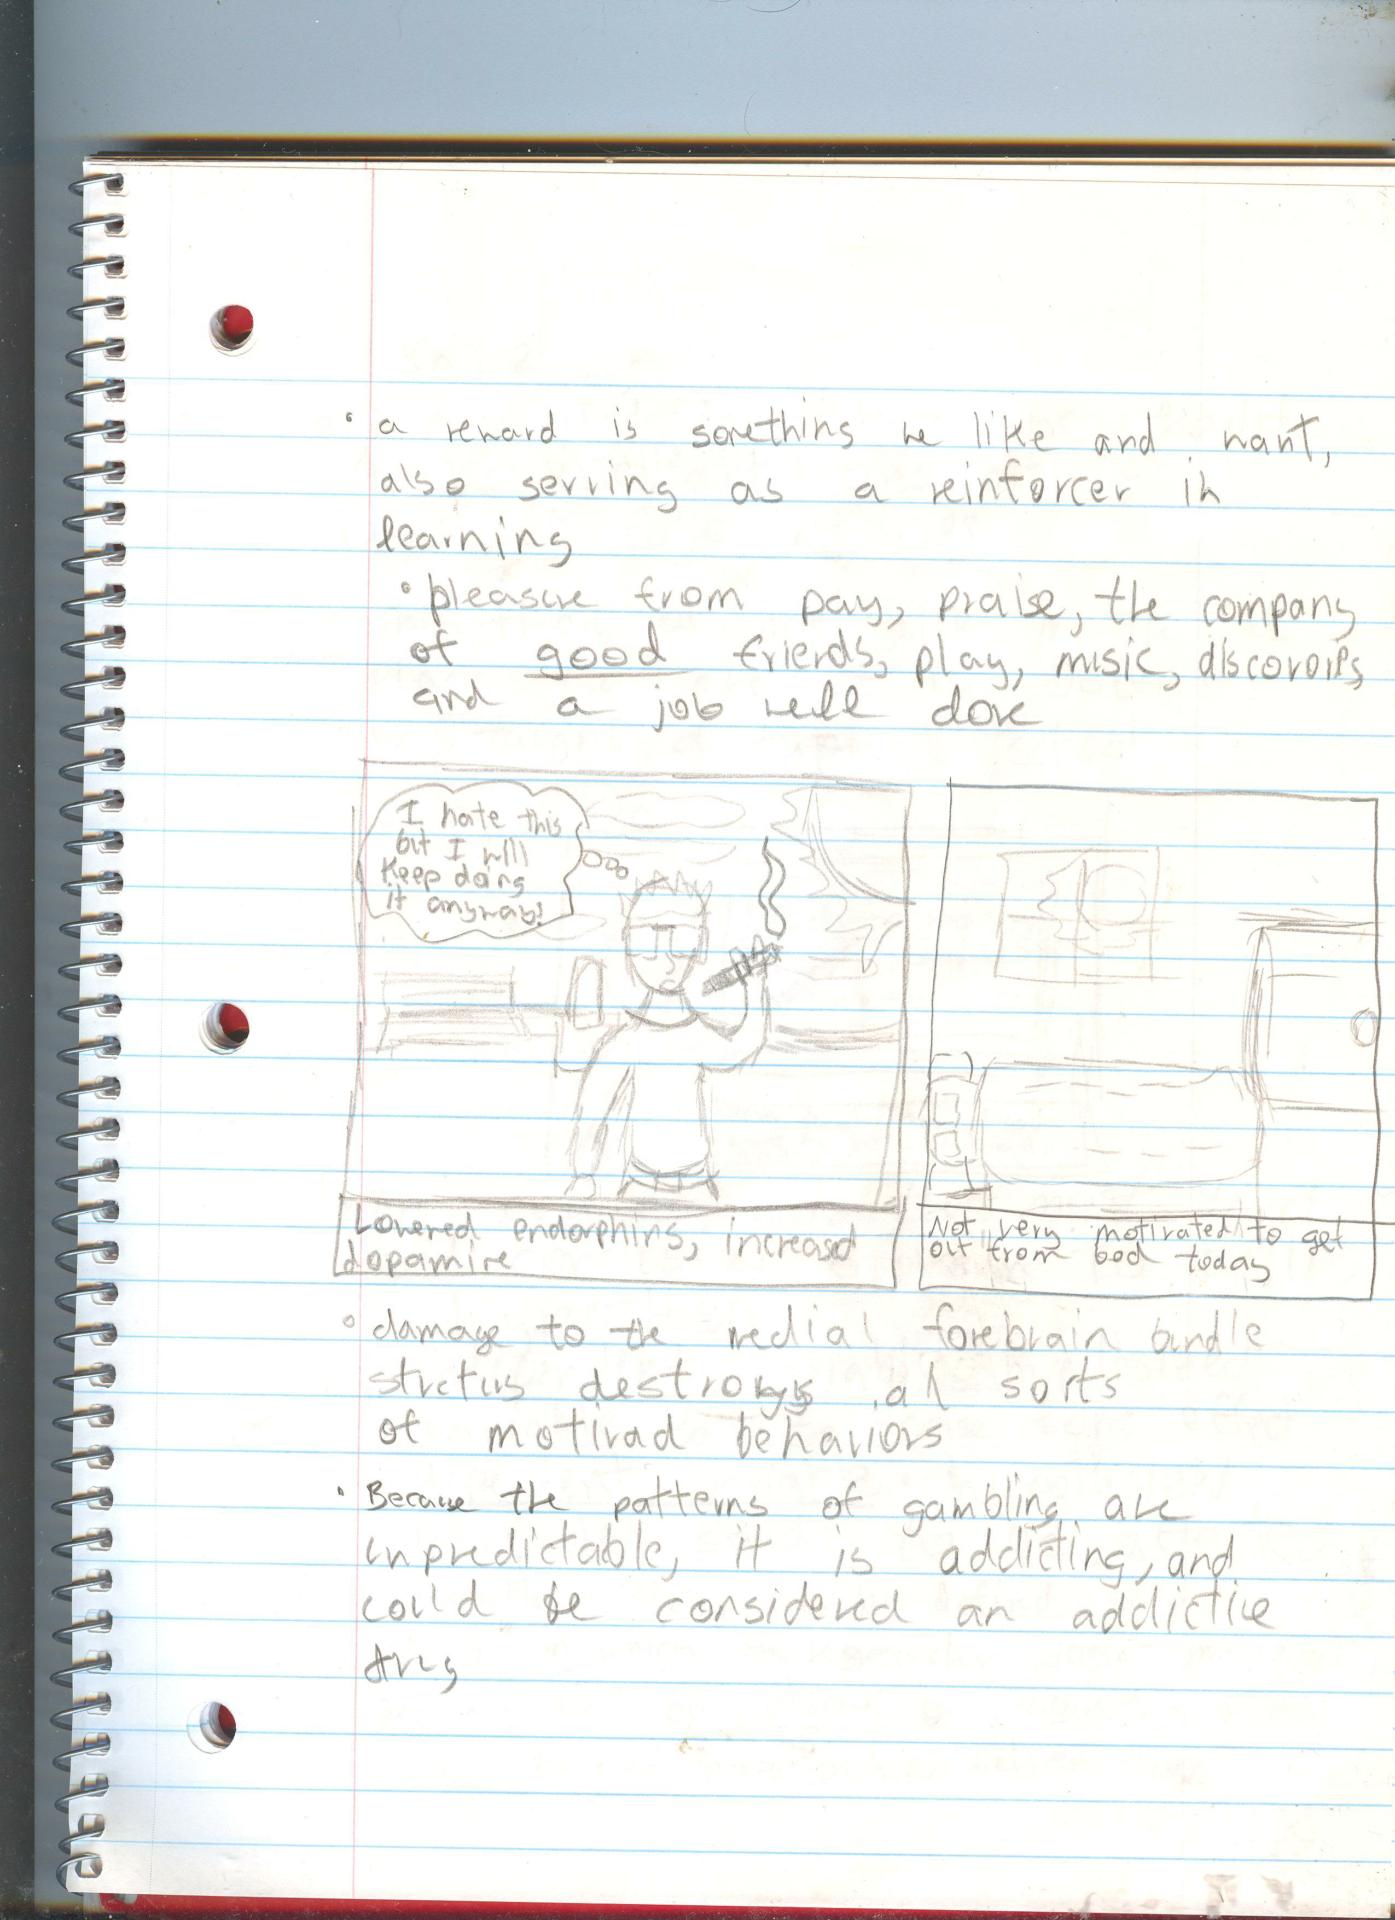 • a reward is something we like and want,
also serving as a reinforcer in
learning
• pleasure from pay, praise, the company
of good friends, play, music, discoveries,
and a job well done
I hate this
but I will
keep doing
it anyway!
Lowered endorphins, increased
dopamine
Not very motivated to get
out from bed today
• damage to the medial forebrain bundle
destroys all sorts
of motivad behaviors
• Because the patterns of gambling are
unpredictable, it is addicting, and
could be considered an addictive
drug